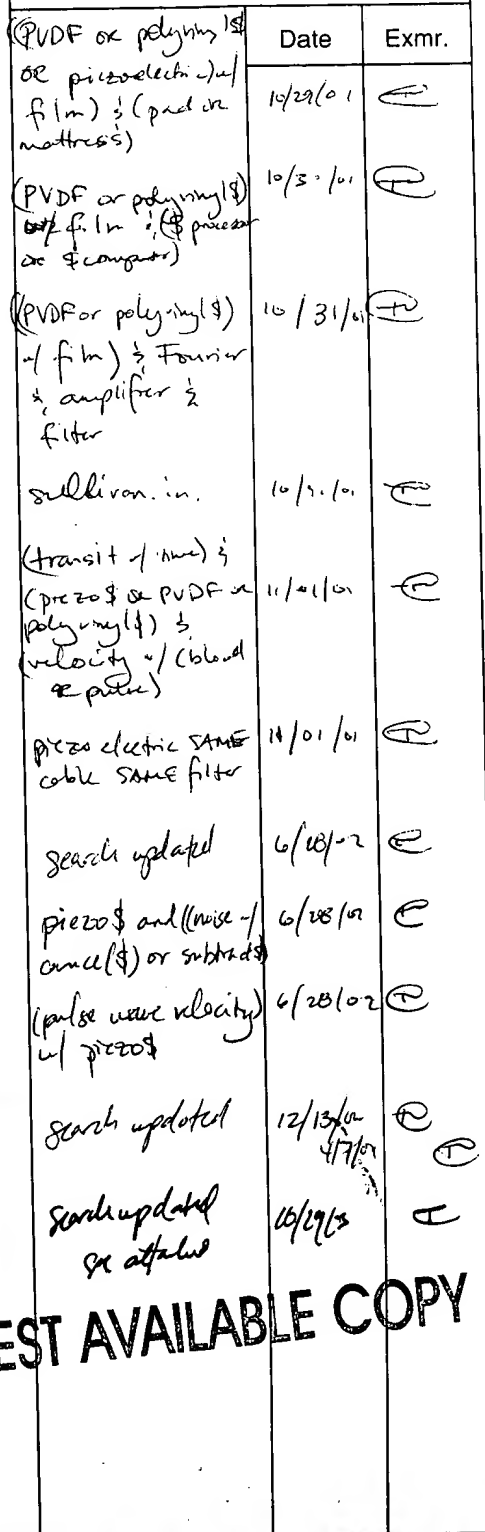 Date Exmr.
((PVDF or polyviny1$
OR piezoelectric) w/
film) & (pad or
mattress) 10/29/01
(PVDF or polyvinyl$)
w/ film & ($processor
or $computer) 10/30/01
((PVDF or polyvinyl$)
w/ film) & Fourier
& amplifier &
filter 10/31/01
sullivan.in.
(transit w/ time) &
(piezo$ or PVDF or
polyvinyl$) & 11/01/01
(velocity w/ (blood
or pulse)
piezoelectric SAME
cable SAME filter 11/01/01
search updated 6/28/02
piezo$ and ((noise w/
cancel($) or subtract$) 6/28/02
(pulse wave velocity)
w/ piezo$ 6/28/02
search updated 12/13/02
search updated
see attached 10/29/03
EST AVAILABLE COPY